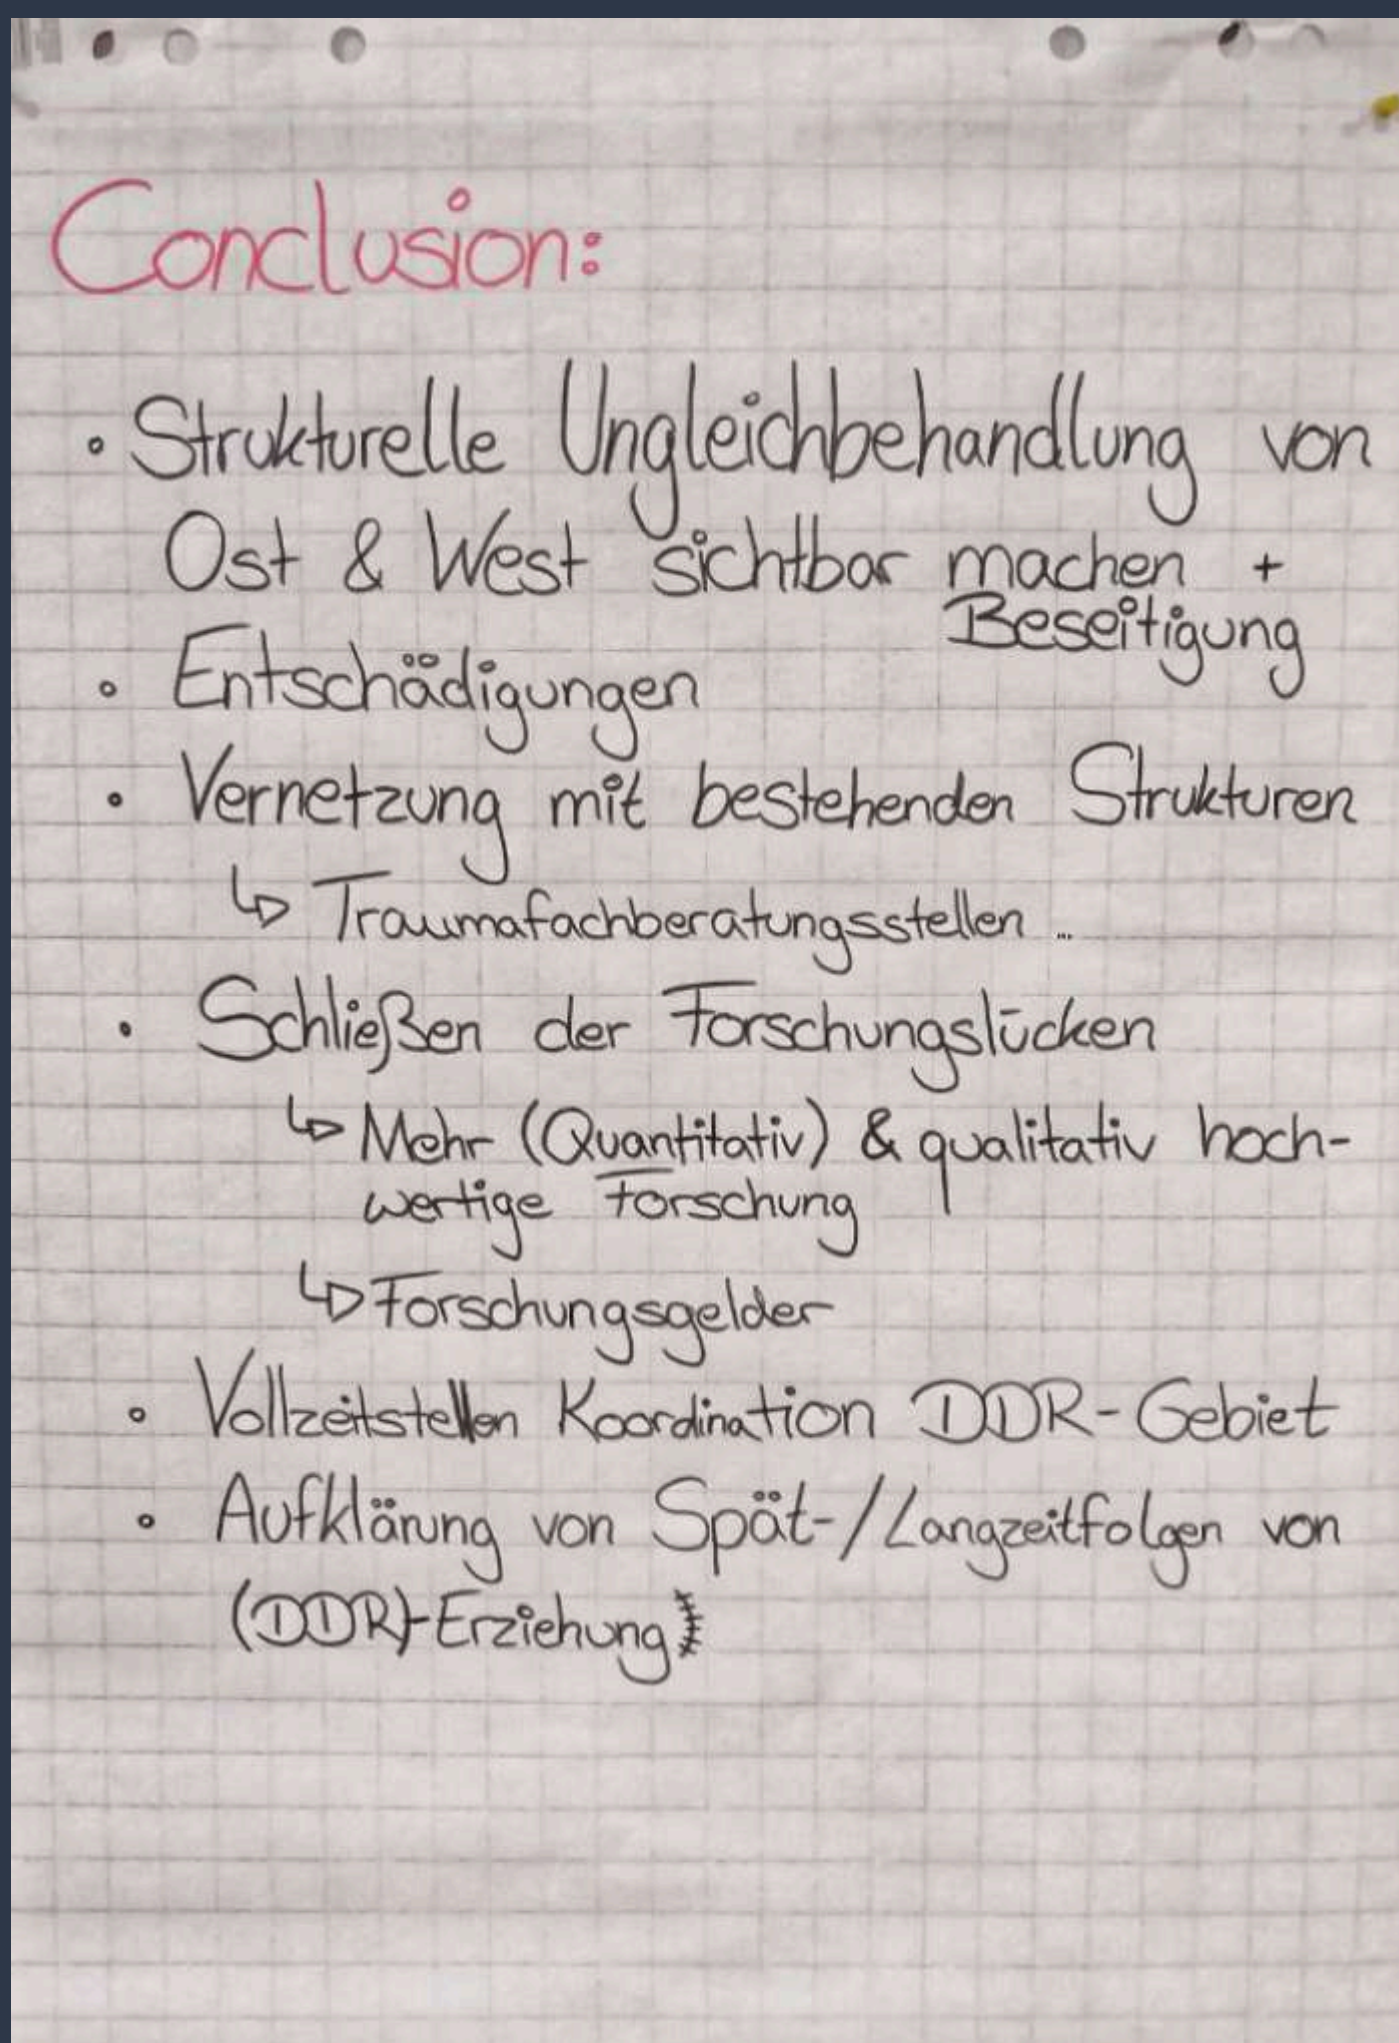 Conclusion:
• Strukturelle Ungleichbehandlung von
Ost & West sichtbar machen +
Beseitigung
• Entschädigungen
• Vernetzung mit bestehenden Strukturen
↳ Traumafachberatungsstellen ...
• Schließen der Forschungslücken
↳ Mehr (Quantitativ) & qualitativ hoch-
wertige Forschung
↳ Forschungsgelder
• Vollzeitstellen Koordination DDR-Gebiet
• Aufklärung von Spät-/Langzeitfolgen von
(DDR)-Erziehung